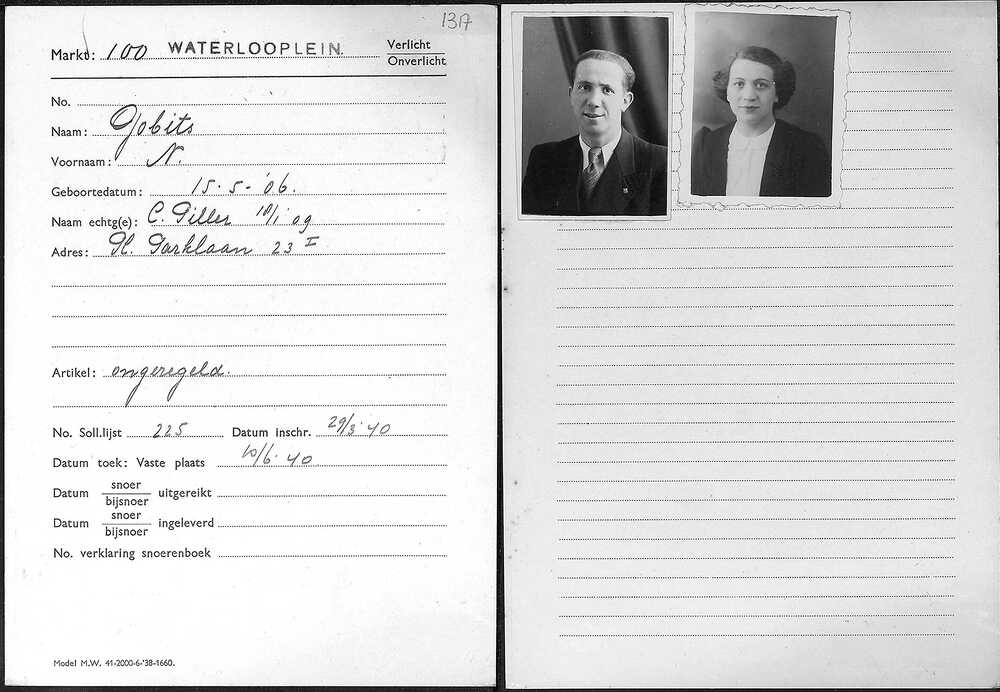 13A
Markt: 100 WATERLOOPLEIN. Verlicht
Onverlicht
No.
Naam: Gobits
Voornaam: N.
Geboortedatum: 15-5-'06.
Naam echtg(e): C. Piller 10/1 09
Adres: Pl. Parklaan 23 I
Artikel: ongeregeld.
No. Soll.lijst 225 Datum inschr. 29/3 '40
Datum toek: Vaste plaats 10/6. 40
Datum snoer uitgereikt
bijsnoer
Datum snoer ingeleverd
bijsnoer
No. verklaring snoerenboek
Model M.W. 41-2000-6-'38-1660.